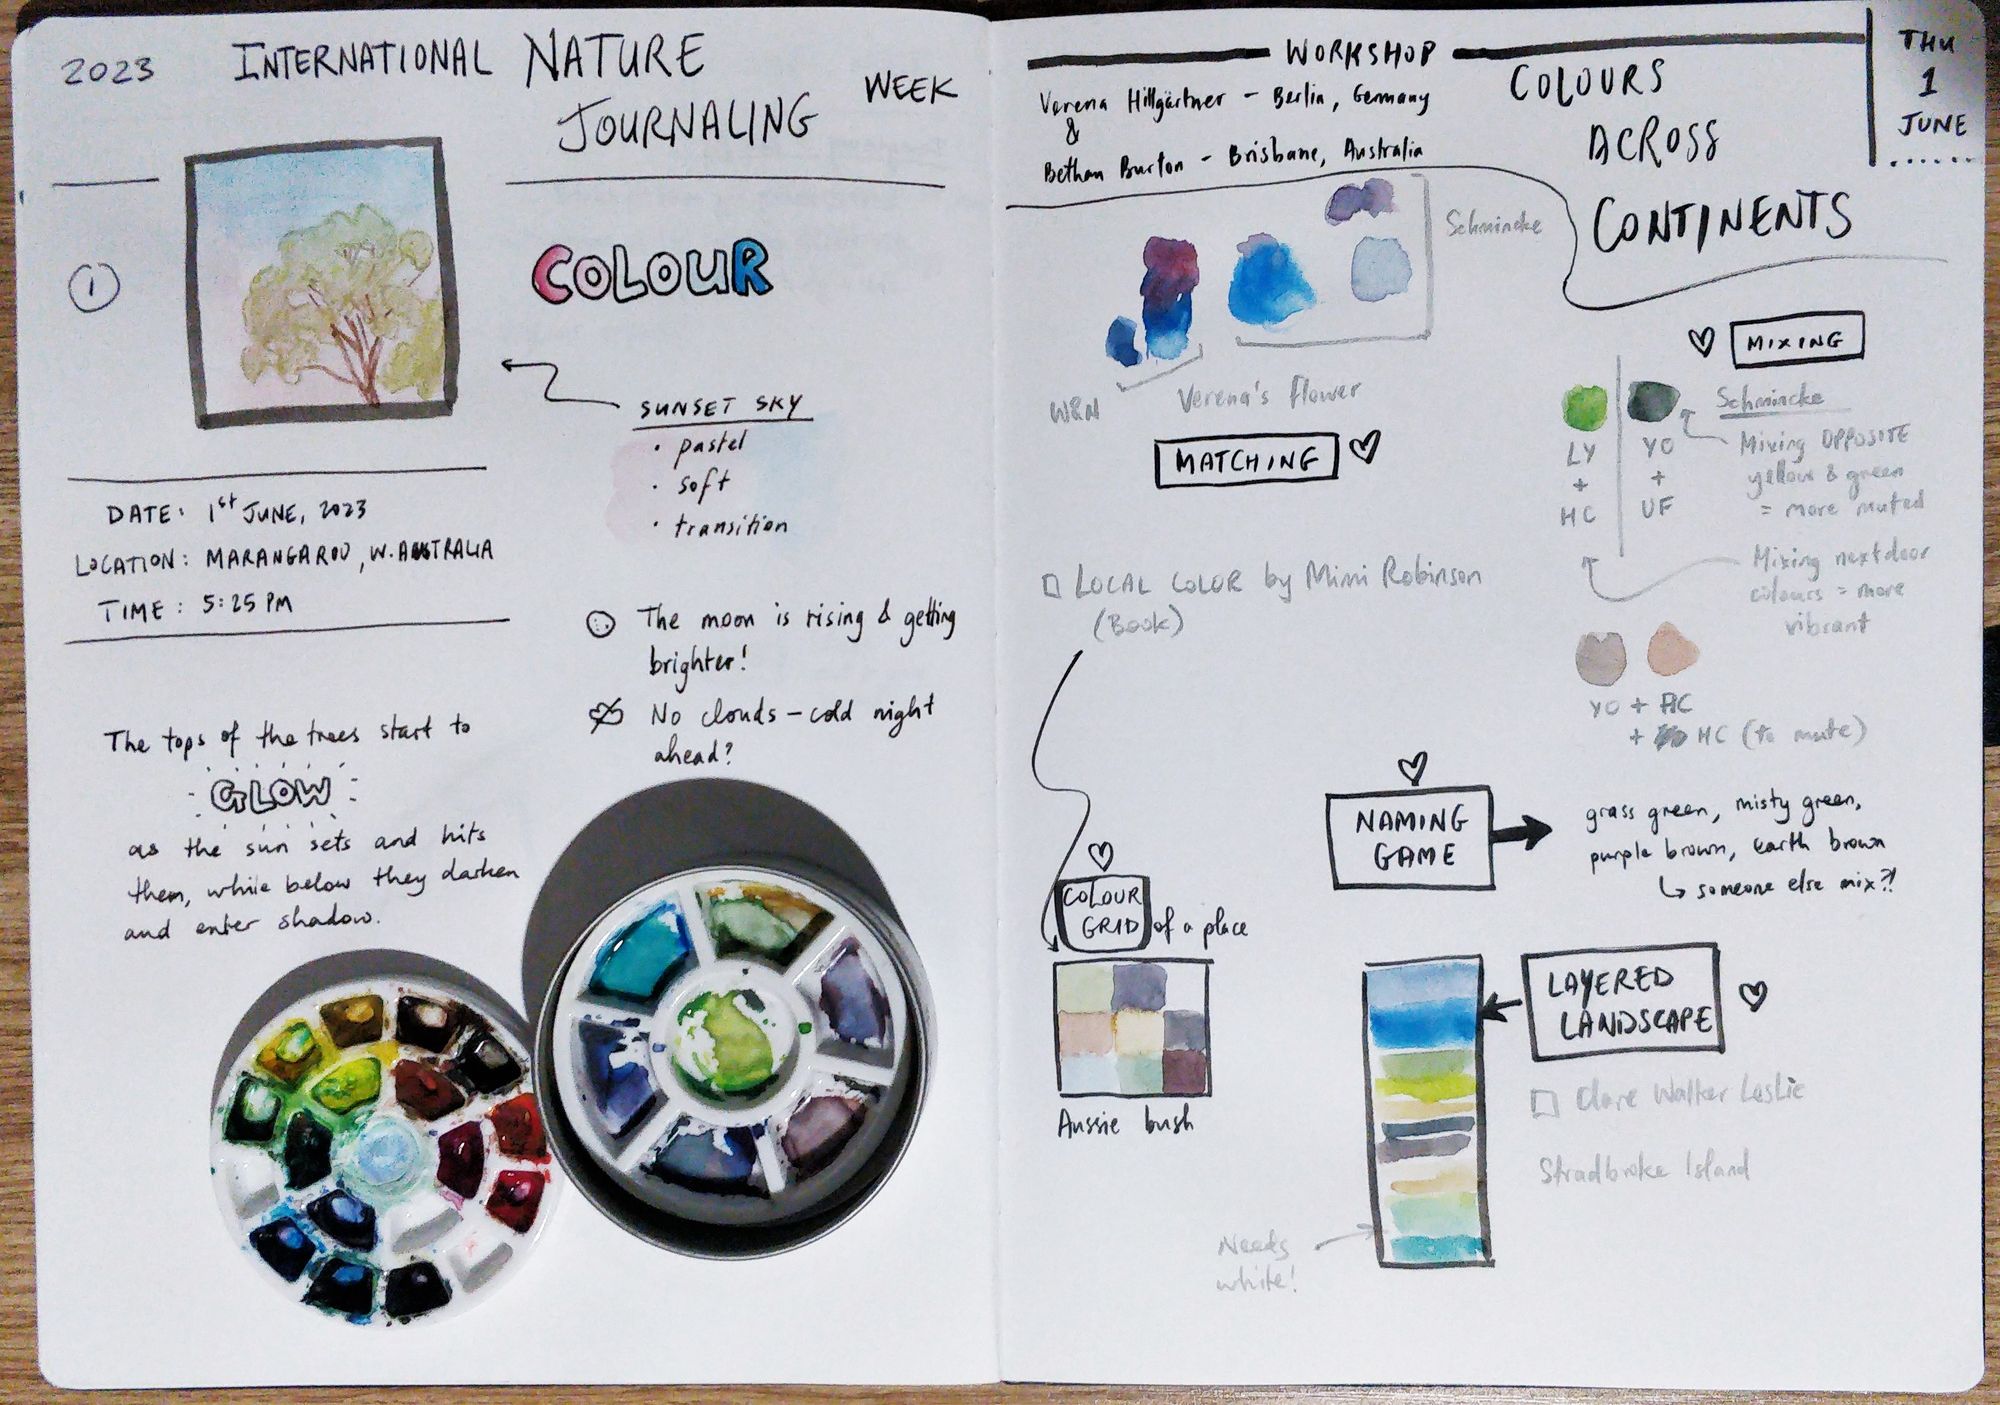 2023
INTERNATIONAL NATURE
JOURNALING
WEEK
1
COLOUR
SUNSET SKY
• pastel
• soft
• transition
DATE: 1st JUNE, 2023
LOCATION: MARANGAROO, W. AUSTRALIA
TIME: 5:25 PM
The moon is rising & getting
brighter!
No clouds – cold night
ahead?
The tops of the trees start to
GLOW
as the sun sets and hits
them, while below they darken
and enter shadow.
WORKSHOP
Verena Hillgärtner – Berlin, Germany
&
Bethan Burton – Brisbane, Australia
COLOURS
ACROSS
CONTINENTS
THU
1
JUNE
Schmincke
W&N
Verena's flower
MATCHING
MIXING
LY
+
HC
YO
+
UF
Schmincke
Mixing OPPOSITE
yellow & green
= more muted
Mixing nextdoor
colours = more
vibrant
YO + AC
+ HC (to mute)
LOCAL COLOR by Mimi Robinson
(Book)
NAMING
GAME
grass green, misty green,
purple brown, earth brown
someone else mix?!
COLOUR
GRID of a place
Aussie bush
LAYERED
LANDSCAPE
Clare Walker Leslie
Stradbroke Island
Needs
white!